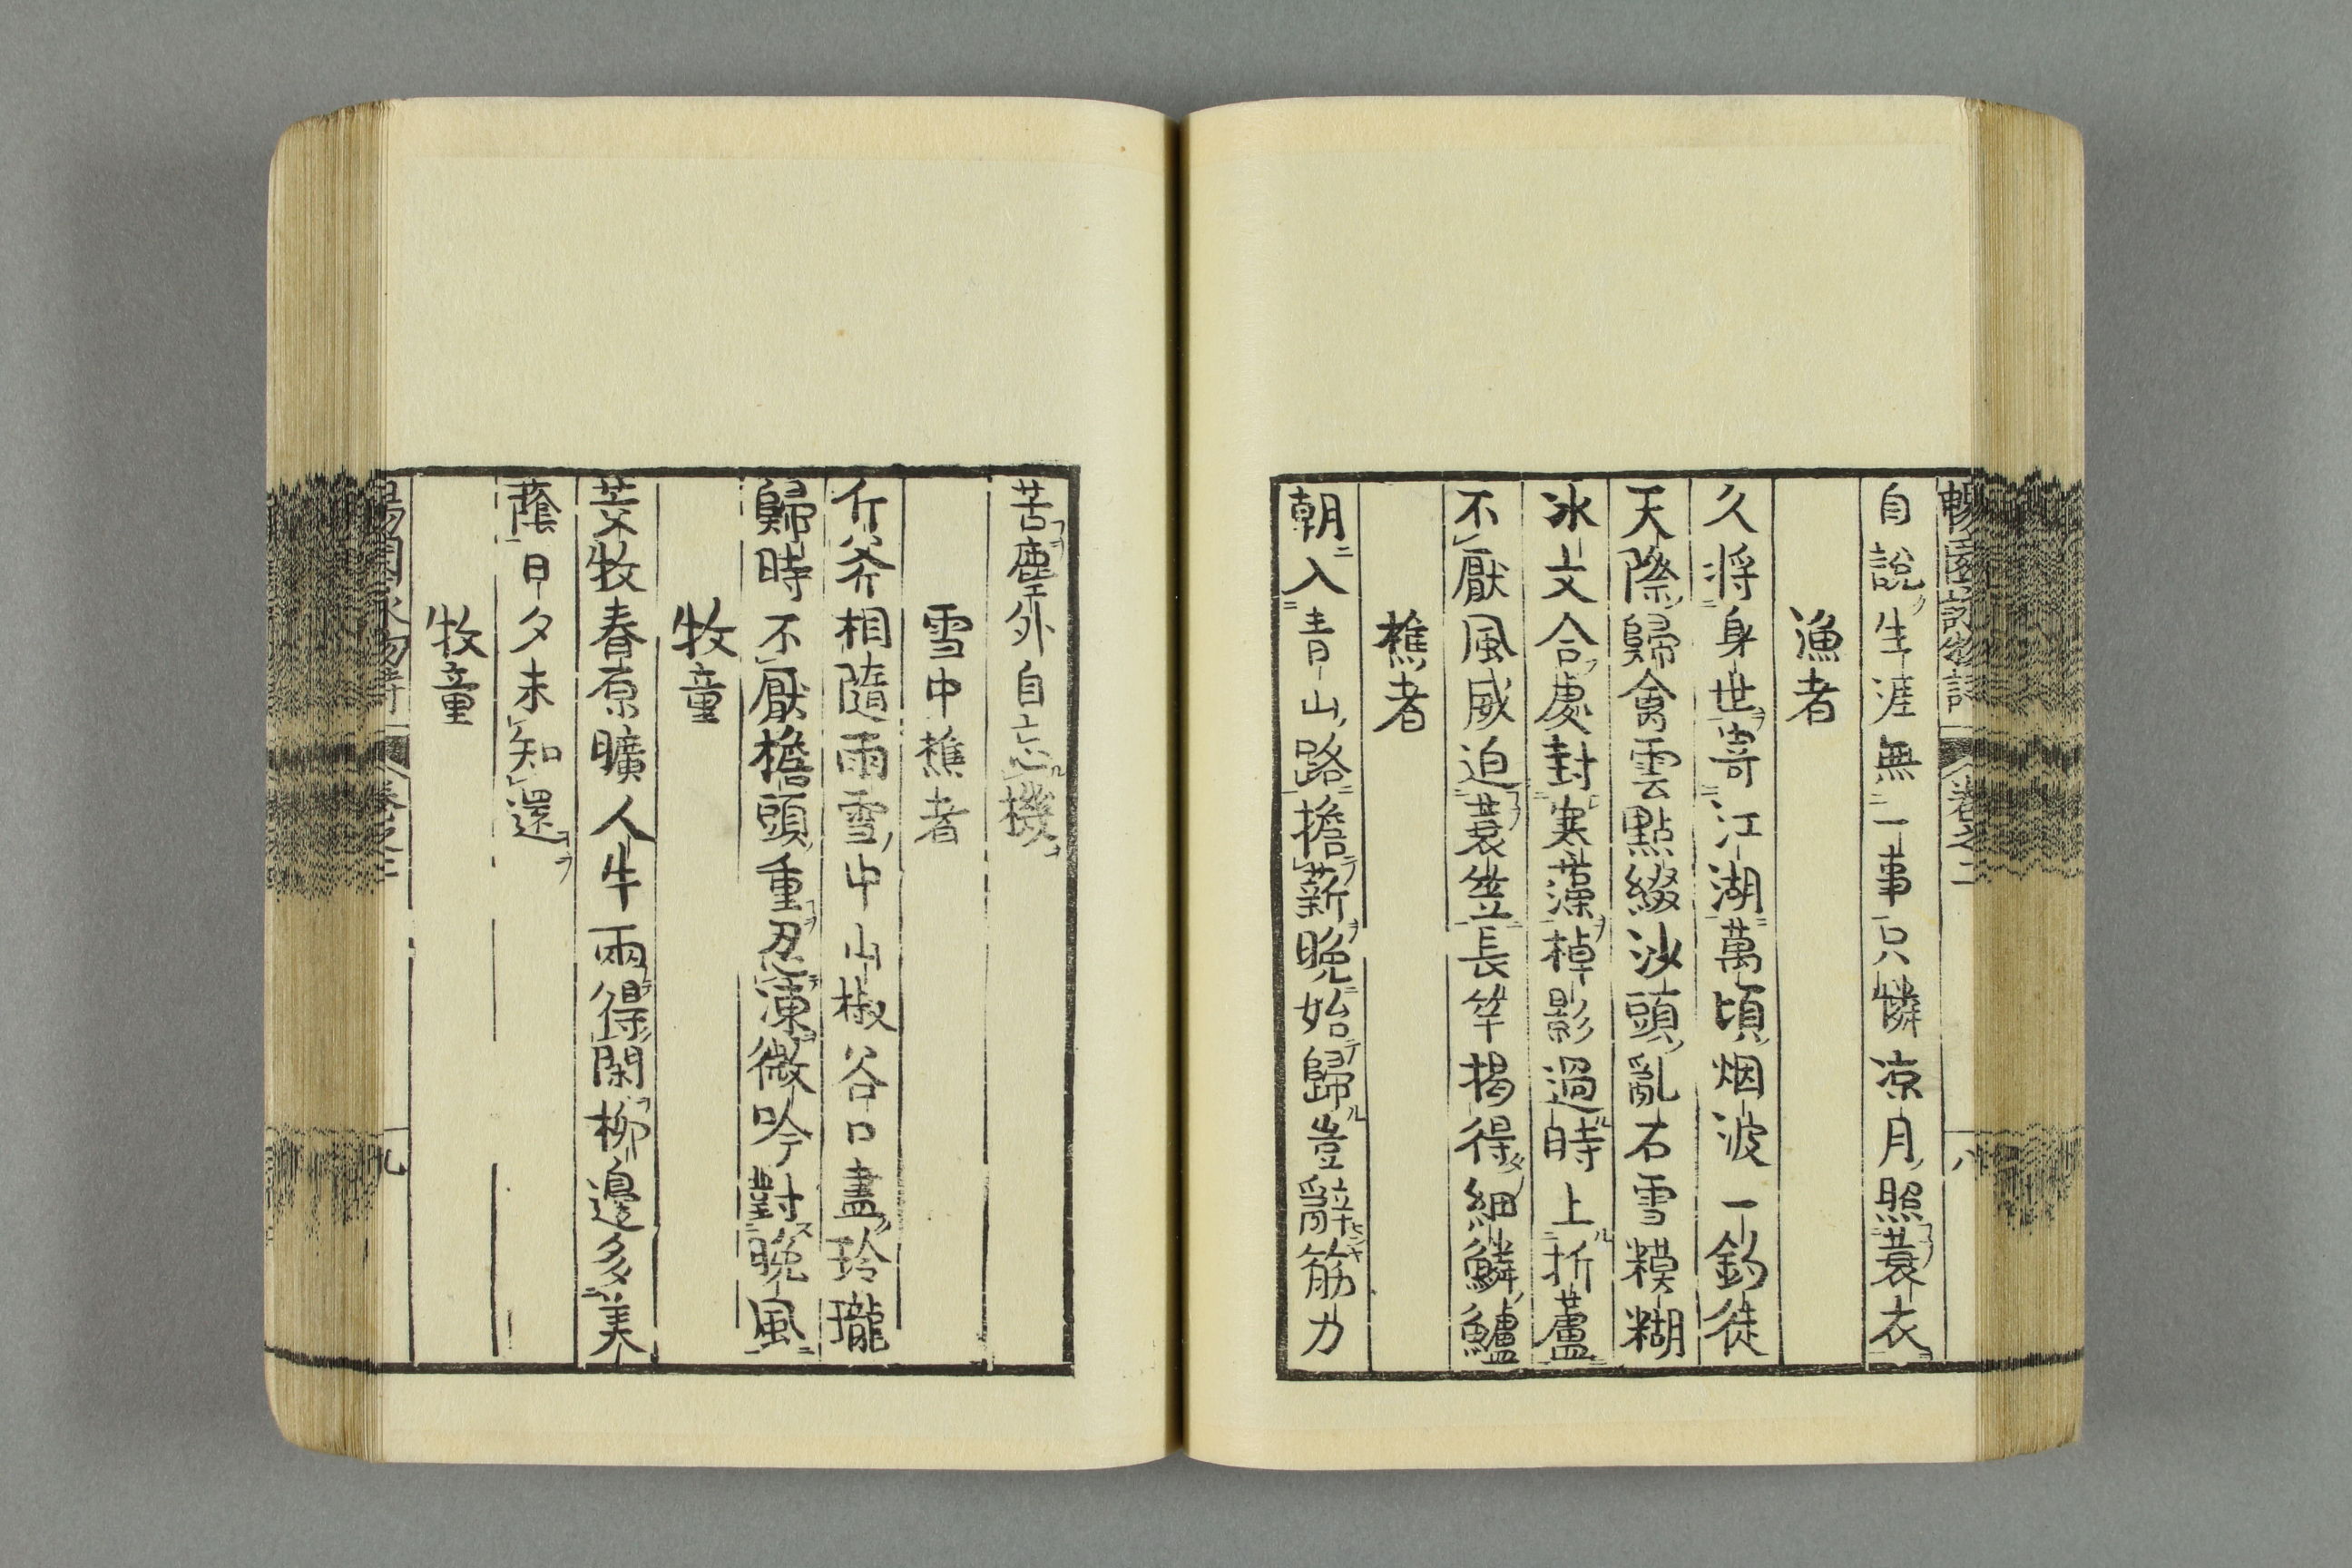 暢園詠物詩 卷之二 八
自說生涯無一事只憐凉月照蓑衣
漁者
久將身世寄江湖萬頃烟波一釣徒
天際歸禽雲點綴沙頭亂石雪糢糊
冰文合處封寒藻棹影過時上折蘆
不厭風威迫蓑笠長竿揭得細鱗鱸
樵者
朝入青山路擔薪晚始歸豈辭筋力
苦塵外自忘機
雪中樵者
斤斧相隨雨雪中山椒谷口盡玲瓏
歸時不厭擔頭重忍凍微吟對晚風
牧童
芻牧春原曠人牛兩得閑柳邊多美
蔭日夕未知還
牧童
暢園詠物詩 卷之二 九